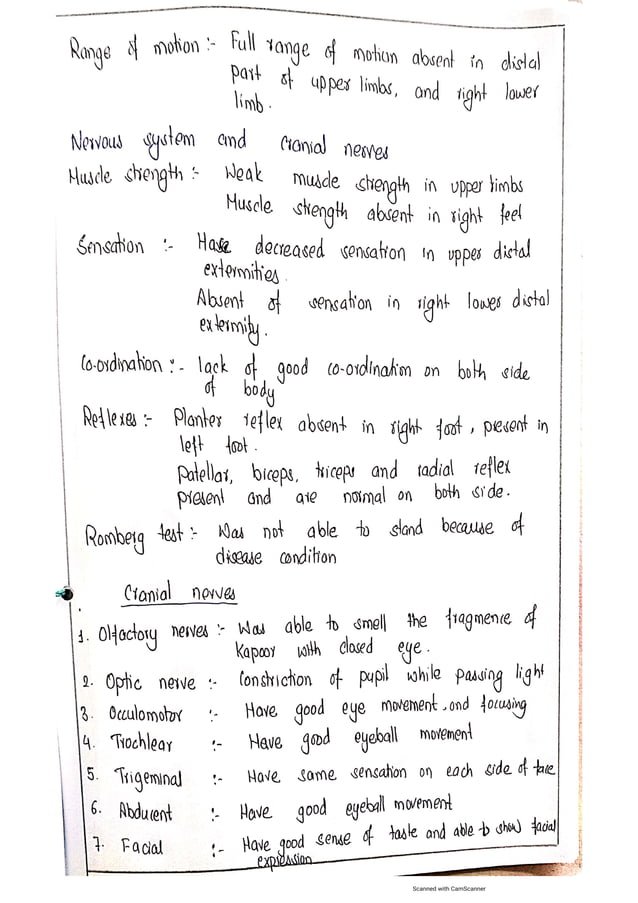 Range of motion :- Full range of motion absent in distal
part of upper limbs, and right lower
limb.
Nervous system and cranial nerves
Muscle strength :- Weak muscle strength in upper limbs
Muscle strength absent in right feet
Sensation :- Have decreased sensation in upper distal
extermities.
Absent of sensation in right lower distal
extermity.
Co-ordination :- lack of good co-ordination on both side
of body
Reflexes :- Planter reflex absent in right foot, present in
left foot.
Patellar, biceps, triceps and radial reflex
present and are normal on both side.
Romberg test :- Was not able to stand because of
disease condition
Cranial nerves
1. Olfactory nerves :- Was able to smell the fragmence of
Kapoor with closed eye.
2. Optic nerve :- Constriction of pupil while passing light
3. Occulomotor :- Have good eye movement and focusing
4. Trochlear :- Have good eyeball movement
5. Trigeminal :- Have same sensation on each side of face
6. Abducent :- Have good eyeball movement
7. Facial :- Have good sense of taste and able to show facial
expression
Scanned with CamScanner